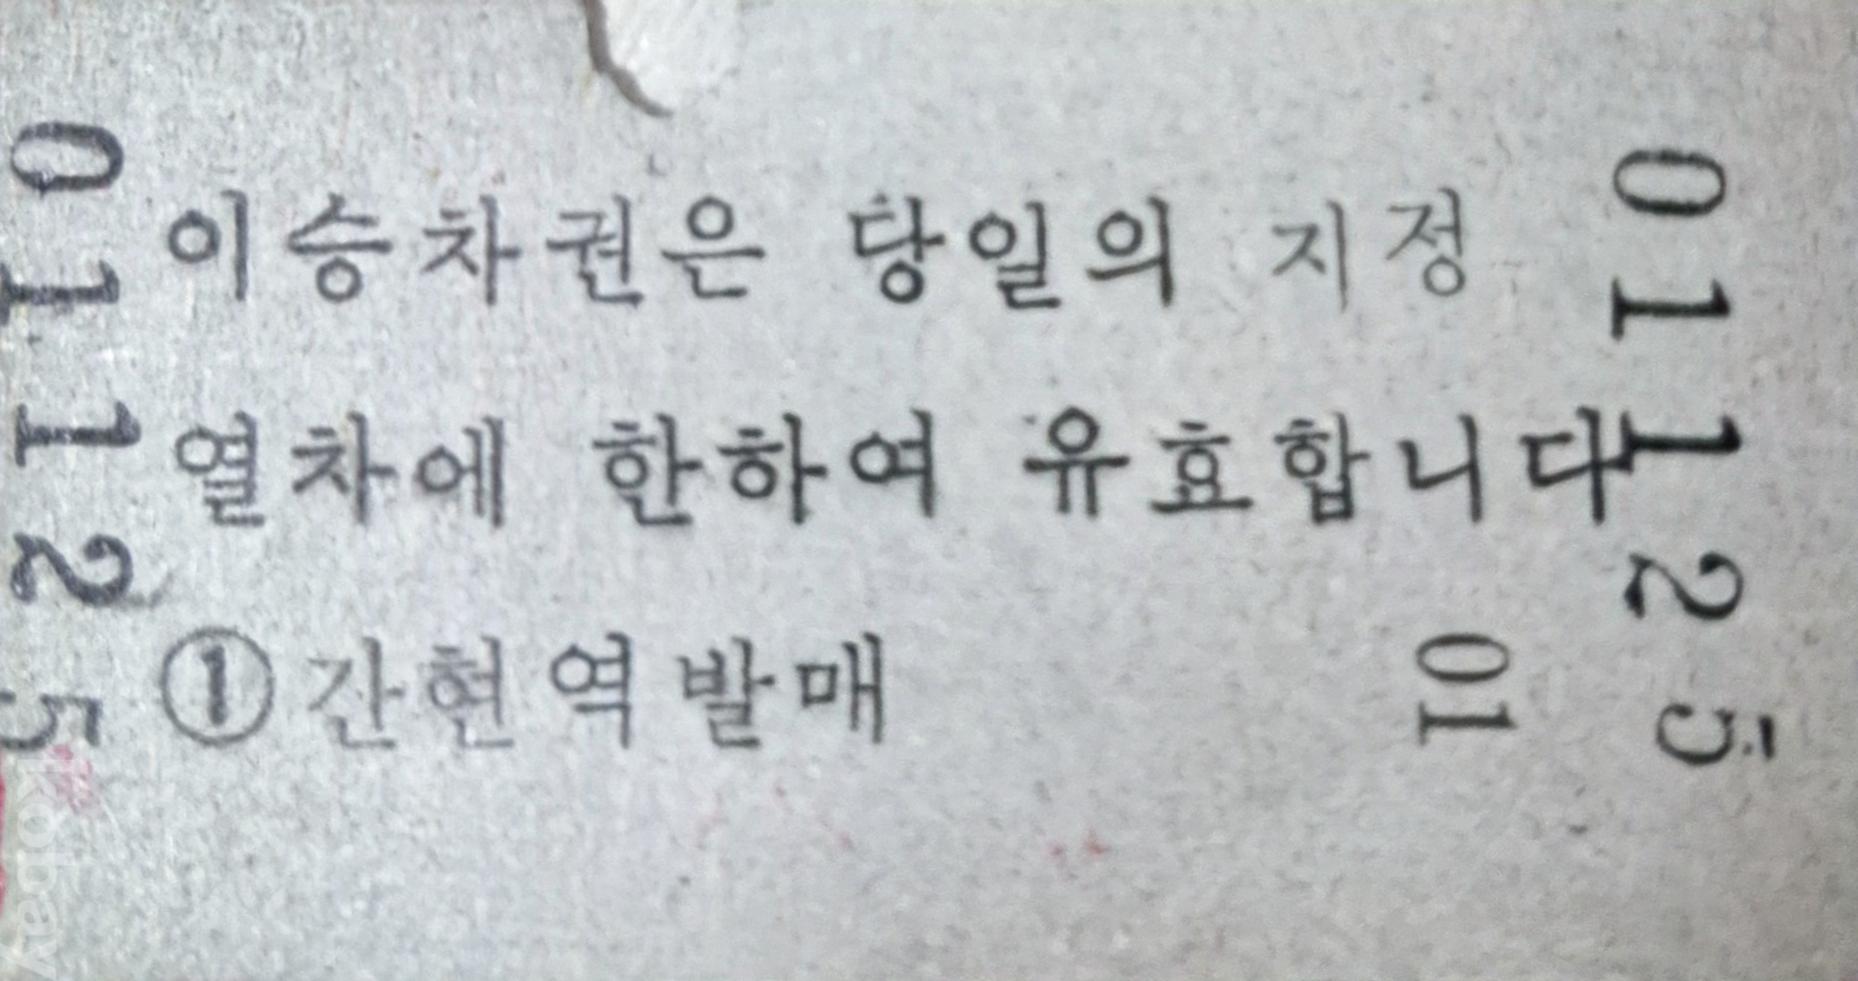 01125
이승차권은 당일의 지정
열차에 한하여 유효합니다
①간현역발매
01
01125
kobay